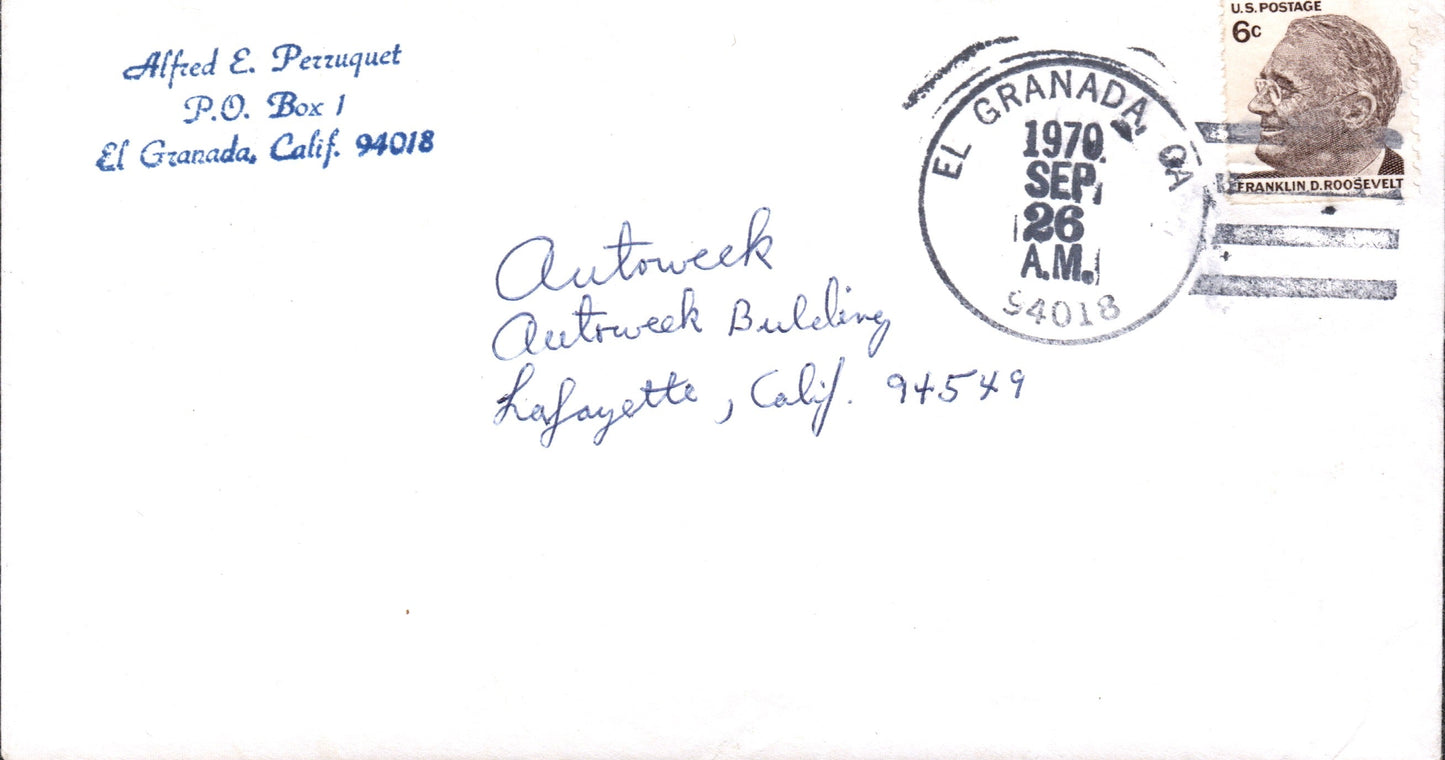 Alfred E. Perruquet
P.O. Box 1
El Granada, Calif. 94018
EL GRANADA, CA
1970
SEP
26
A.M.
94018
U.S. POSTAGE
6c
FRANKLIN D. ROOSEVELT
Autoweek
Autoweek Building
Lafayette, Calif. 94549